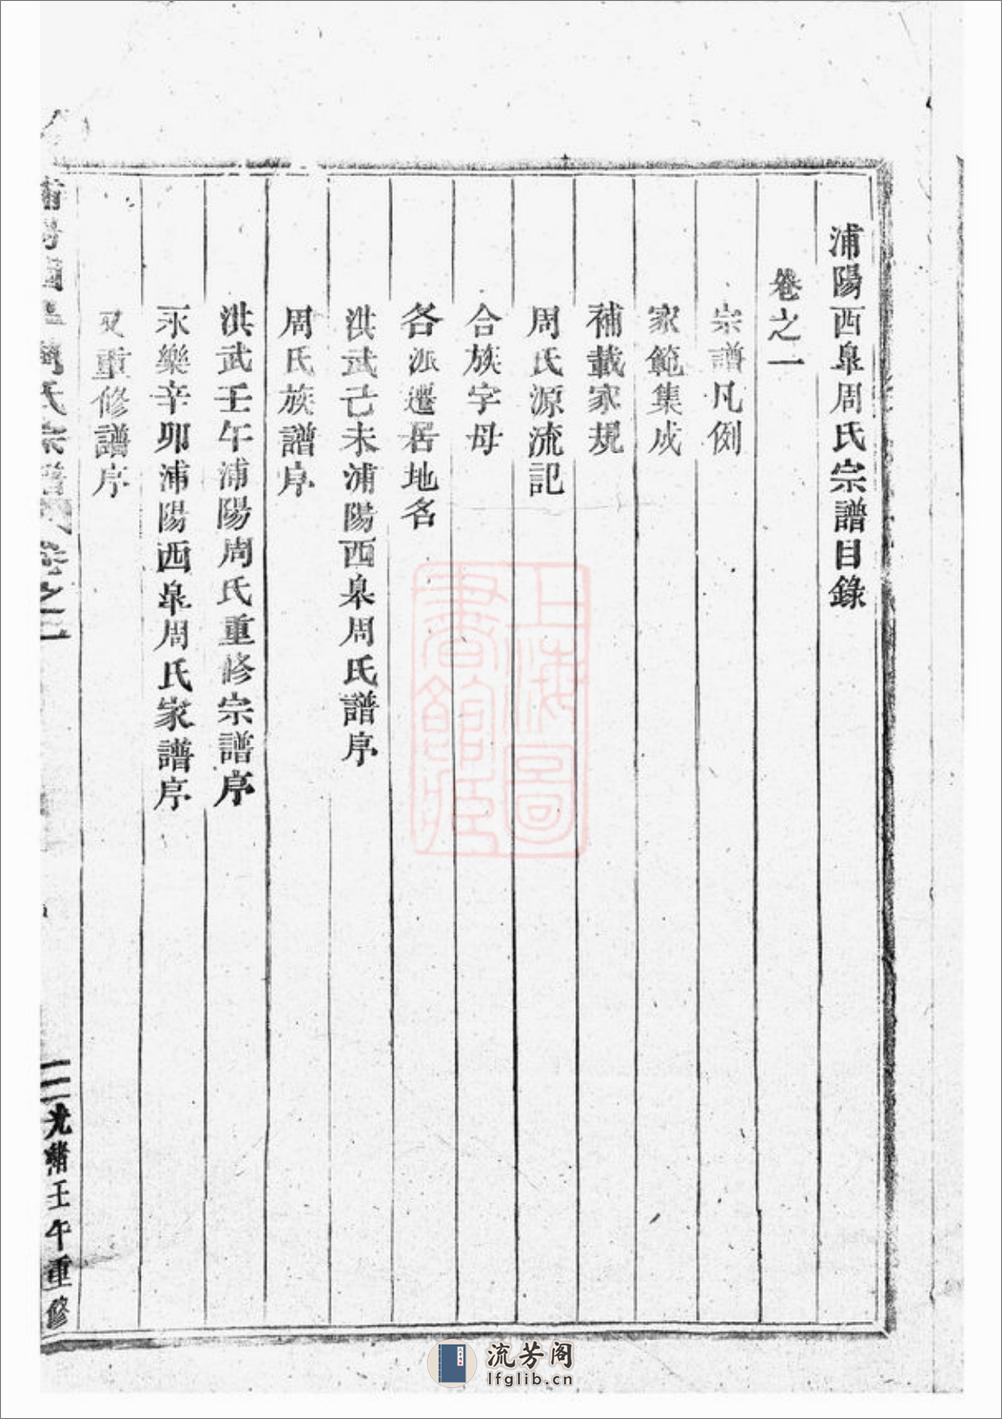 浦陽西臯周氏宗譜目錄
卷之一
宗譜凡例
家範集成
補載家規
周氏源流記
合族字母
各派遷居地名
洪武己未浦陽西臯周氏譜序
周氏族譜序
洪武壬午浦陽周氏重修宗譜序
永樂辛卯浦陽西臯周氏家譜序
又重修譜序
浦陽西臯周氏宗譜 卷之一
光緒壬午重修
上海圖
書館藏
流芳阁
lfglib.cn